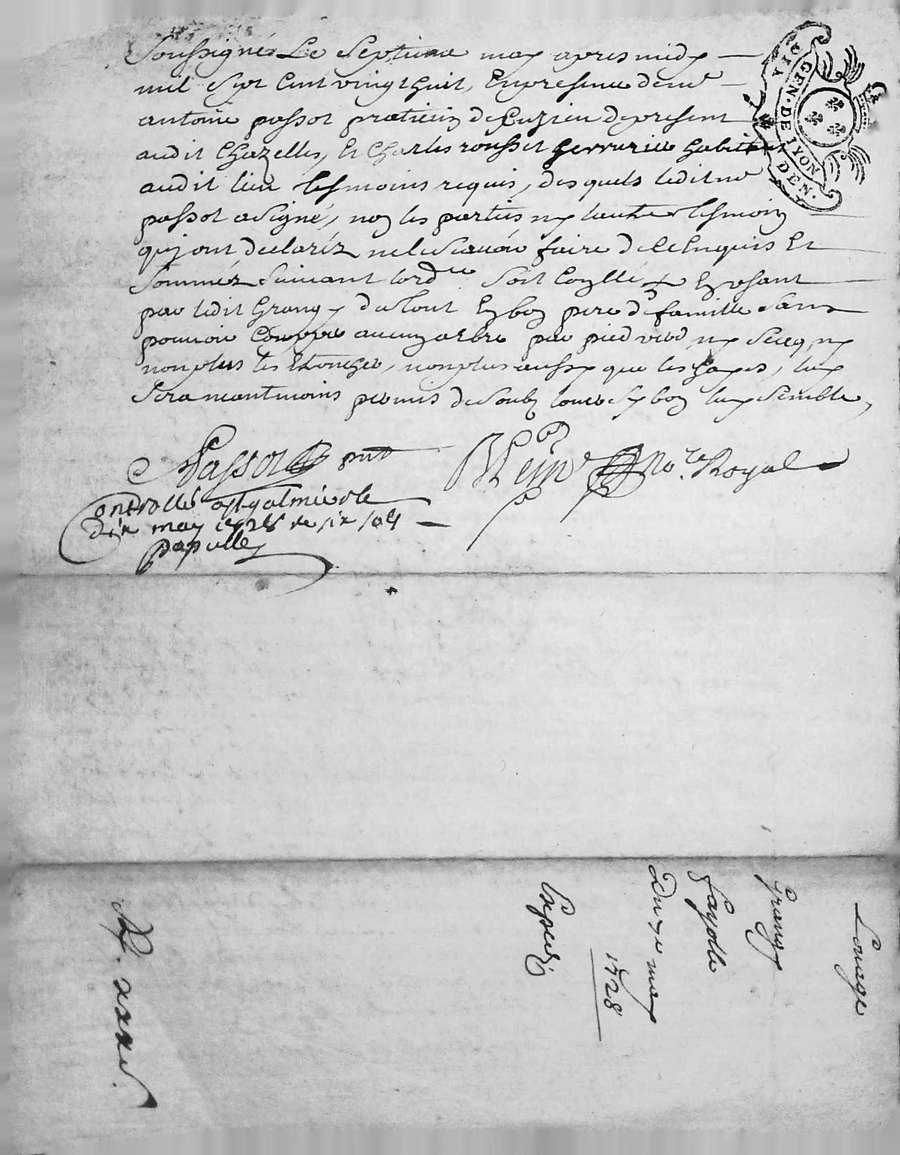 Soussigné Le Septieme may apres midy
mil Sept Cent vingt huit, En presence de me
antoine passot praticien de Cuzieu de present
audit Chazelles, Et Charles rousset Serrurier habitant
audit lieu tesmoins requis, desquels ledit me
passot a Signé, non les parties ny l'autre tesmoin
qui ont declaréz ne le scavoir faire de ce Enquis Et
Sommez Suivant lord.ce Soit Coyllé Et
par ledit Grangy du tout En bon pere de famille Sans
pouvoir Couppe aucun arbre par pied verd ny Secq ny
non plus les Etonzer, non plus aussy que les hayes, luy
Sera neantmoins permis de
Passot pnt
No.re Royal
Controllé a St galmier le
dix may 1728 Re six sols
papulle
GEN. DE LYON
DEN.
Louage
Grangy
fayolle
Du 7e may
1728
Exped.